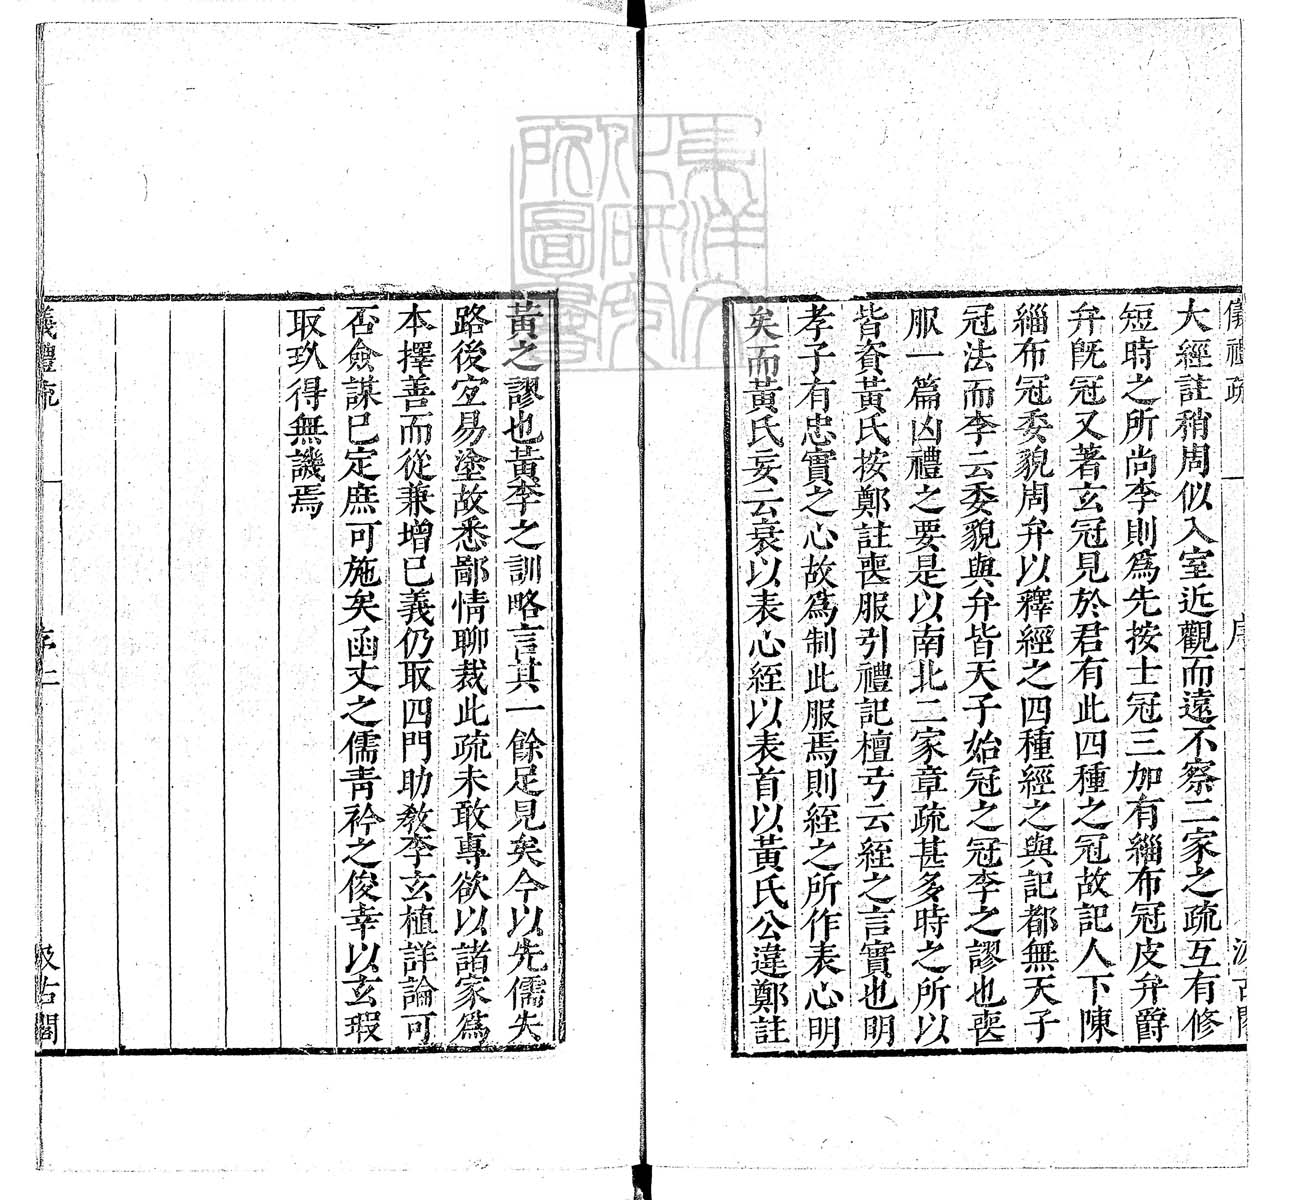 儀禮疏 序一 汲古閣
大經註稍周似入室近觀而遠不察二家之疏互有修
短時之所尚李則爲先按士冠三加有緇布冠皮弁爵
弁旣冠又著玄冠見於君有此四種之冠故記人下陳
緇布冠委貌周弁以釋經之四種經之與記都無天子
冠法而李云委貌與弁皆天子始冠之冠李之謬也喪
服一篇凶禮之要是以南北二家章疏甚多時之所以
皆資黃氏按鄭註喪服引禮記檀弓云絰之言實也明
孝子有忠實之心故爲制此服焉則絰之所作表心明
矣而黃氏妄云衰以表心絰以表首以黃氏公違鄭註
黃之謬也黃李之訓略言其一餘足見矣今以先儒失
路後宜易塗故悉鄙情聊裁此疏未敢專欲以諸家爲
本擇善而從兼增己義仍取四門助教李玄植詳論可
否僉謀已定庶可施矣函丈之儒靑衿之俊幸以去瑕
取玖得無譏焉
儀禮疏 序二 汲古閣
東洋文化研究所圖書